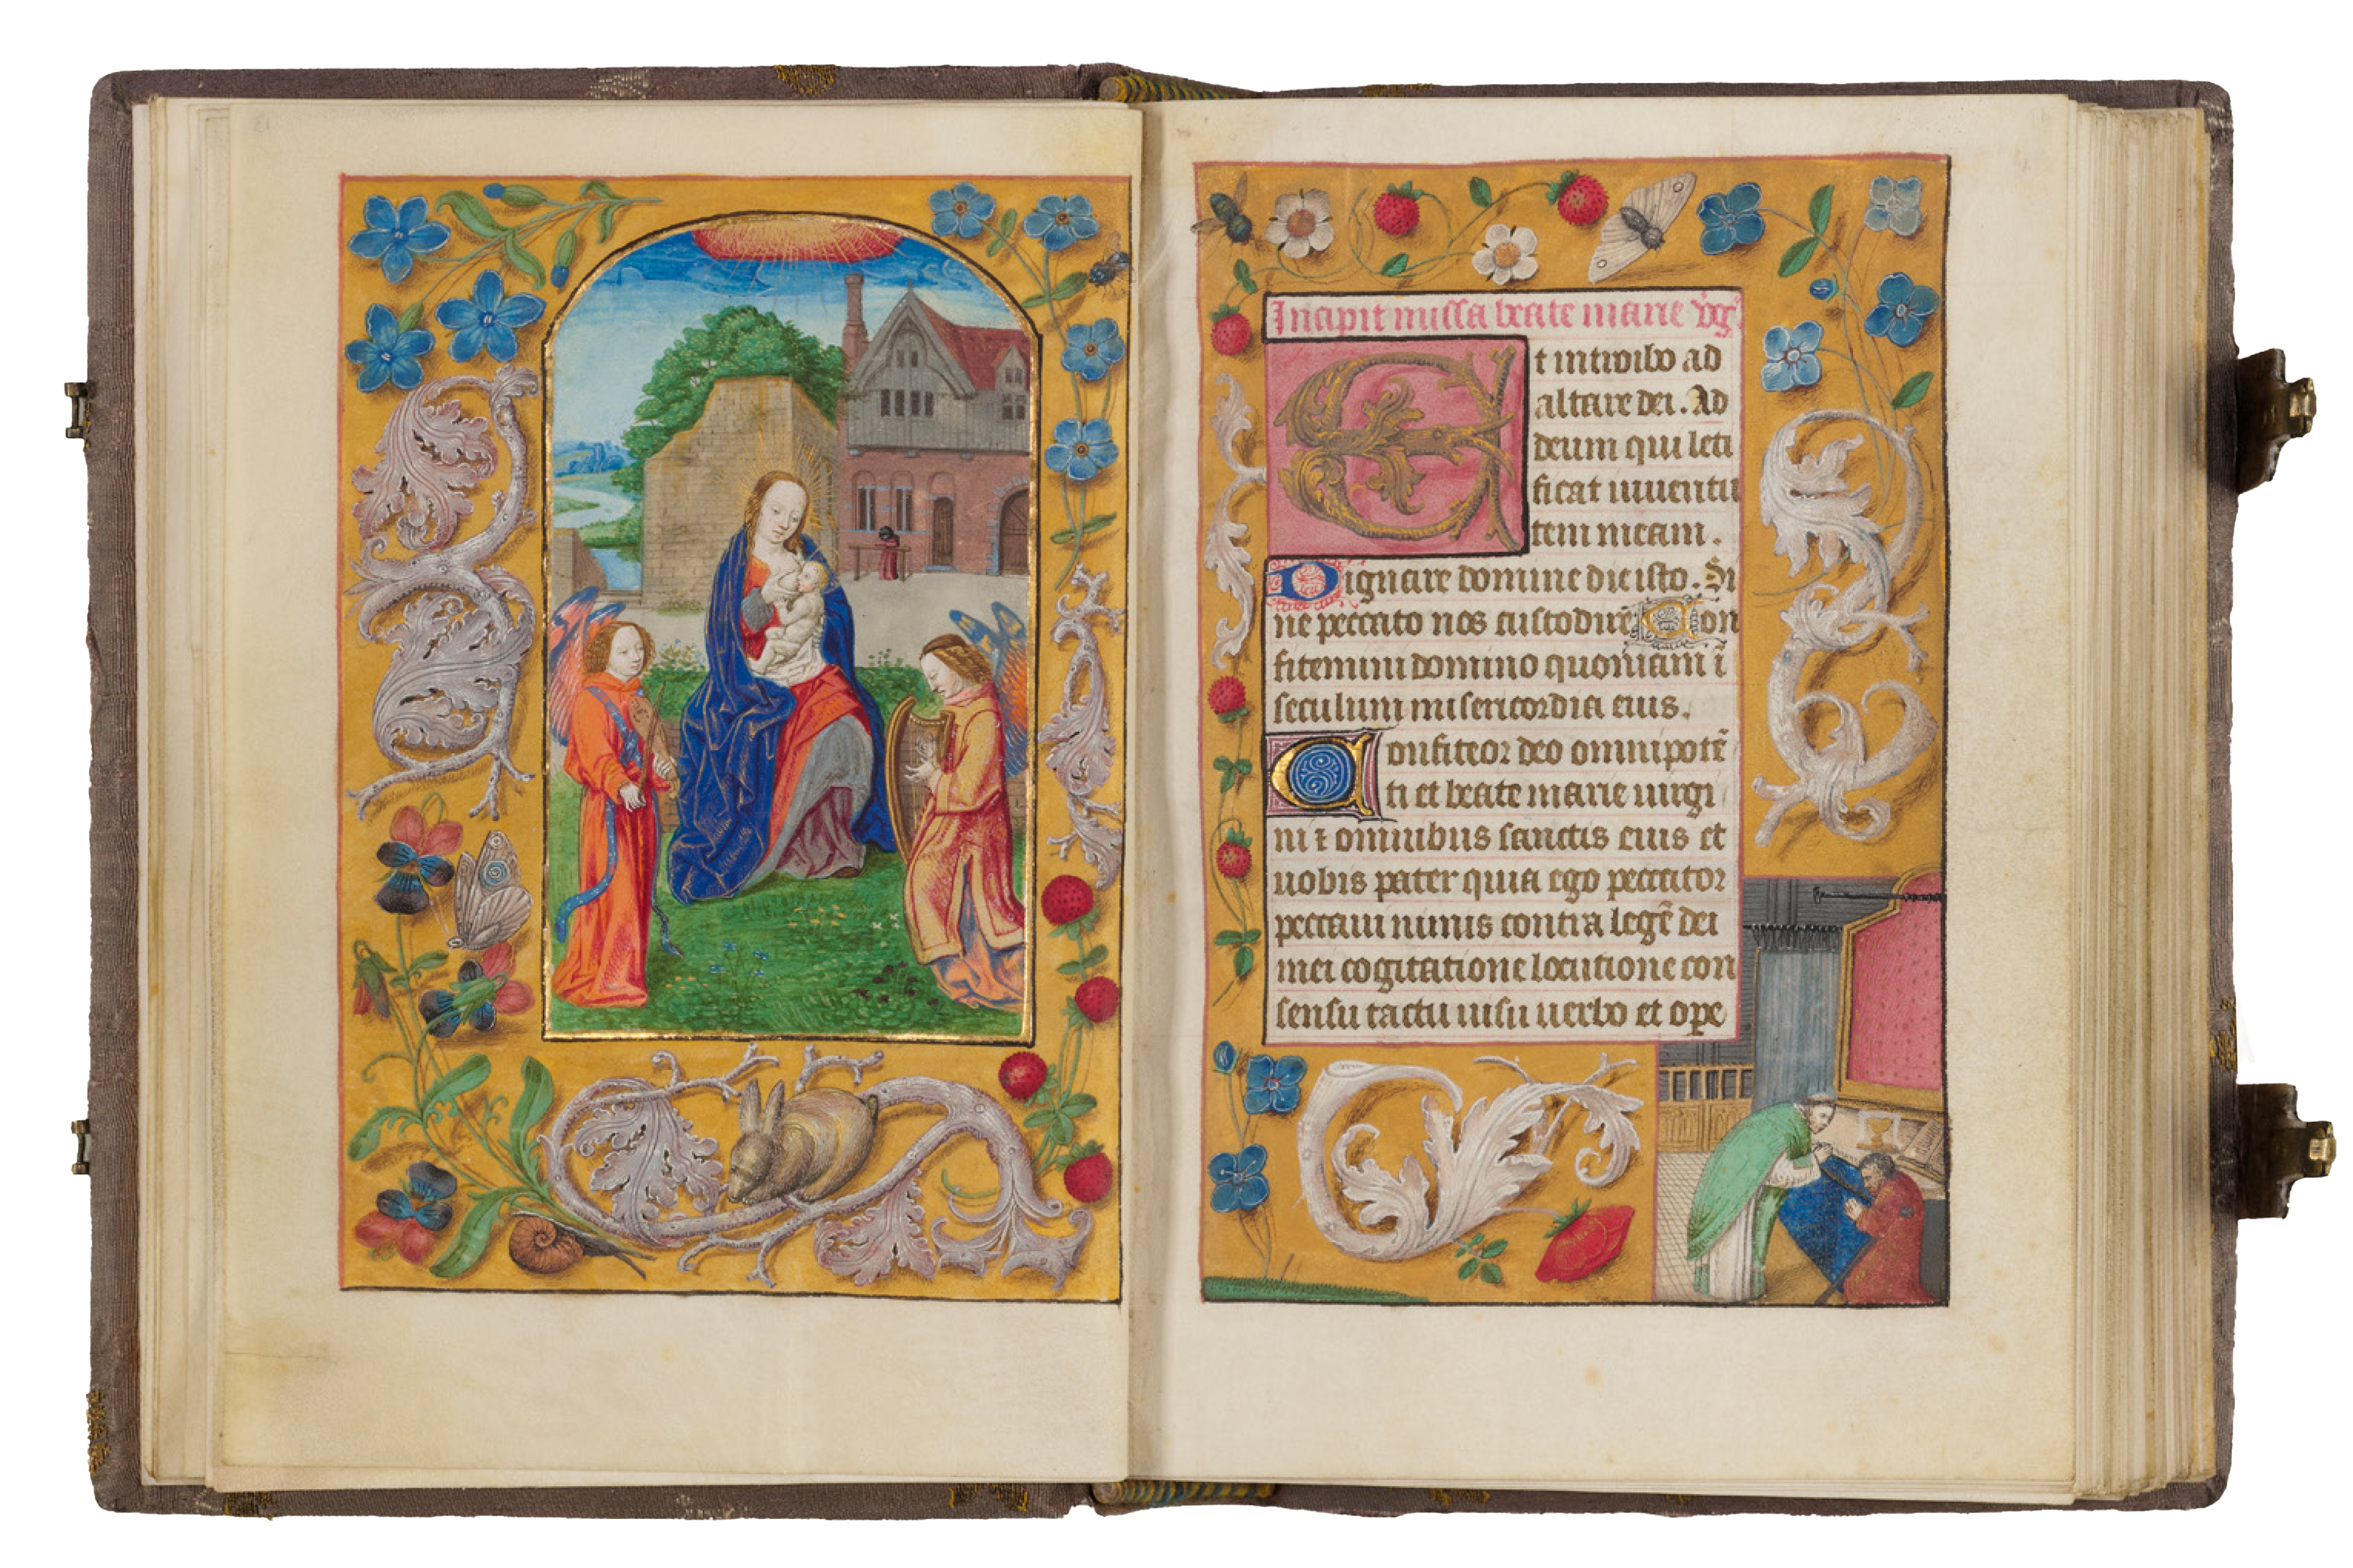 Incipit missa beate marie v̄gⁱ
Et introibo ad
altare dei. Ad
deum qui leti
ficat iuuentu
tem meam.
Dignare domine die isto. Si
ne peccato nos custodire Con
fitemini domino quoniam ī
seculum misericordia eius.
Confiteor deo omnipotē
ti et beate marie uirgi
ni ⁊ omnibus sanctis eius et
uobis pater quia ego peccator
peccaui nimis contra legē dei
mei cogitatione locutione con
sensu tactu uisu uerbo et ope